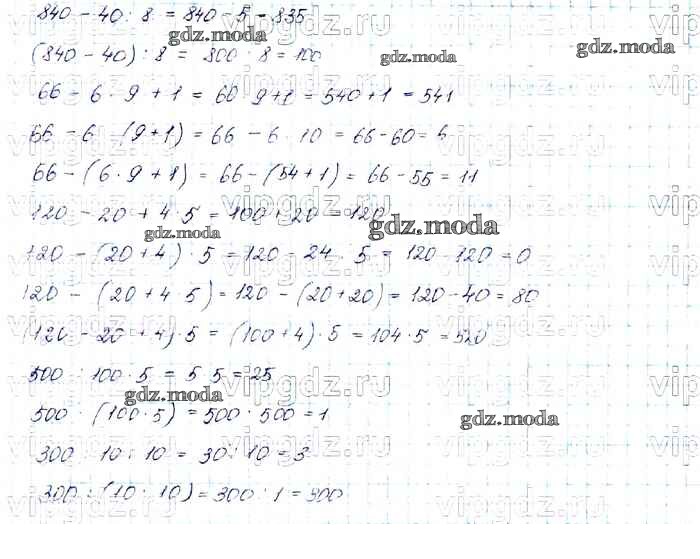 840 - 40 : 8 = 840 - 5 = 835
(840 - 40) : 8 = 800 8 = 100
66 - 6 · 9 + 1 = 60 9 + 1 = 540 + 1 = 541
66 - 6 (9 + 1) = 66 - 6 · 10 = 66 - 60 = 6
66 - (6 · 9 + 1) = 66 - (54 + 1) = 66 - 55 = 11
120 - 20 + 4 · 5 = 100 + 20 = 120
120 - (20 + 4) · 5 = 120 - 24 · 5 = 120 - 120 = 0
120 - (20 + 4 · 5) = 120 - (20 + 20) = 120 - 40 = 80
(120 - 20 + 4) · 5 = (100 + 4) · 5 = 104 · 5 = 520
500 : 100 · 5 = 5 5 = 25
500 : (100 · 5) = 500 : 500 = 1
300 : 10 : 10 = 30 : 10 = 3
300 : (10 : 10) = 300 : 1 = 300
gdz.moda
gdz.moda
gdz.moda
gdz.moda
gdz.moda
gdz.moda
gdz.moda
vipgdz.ru